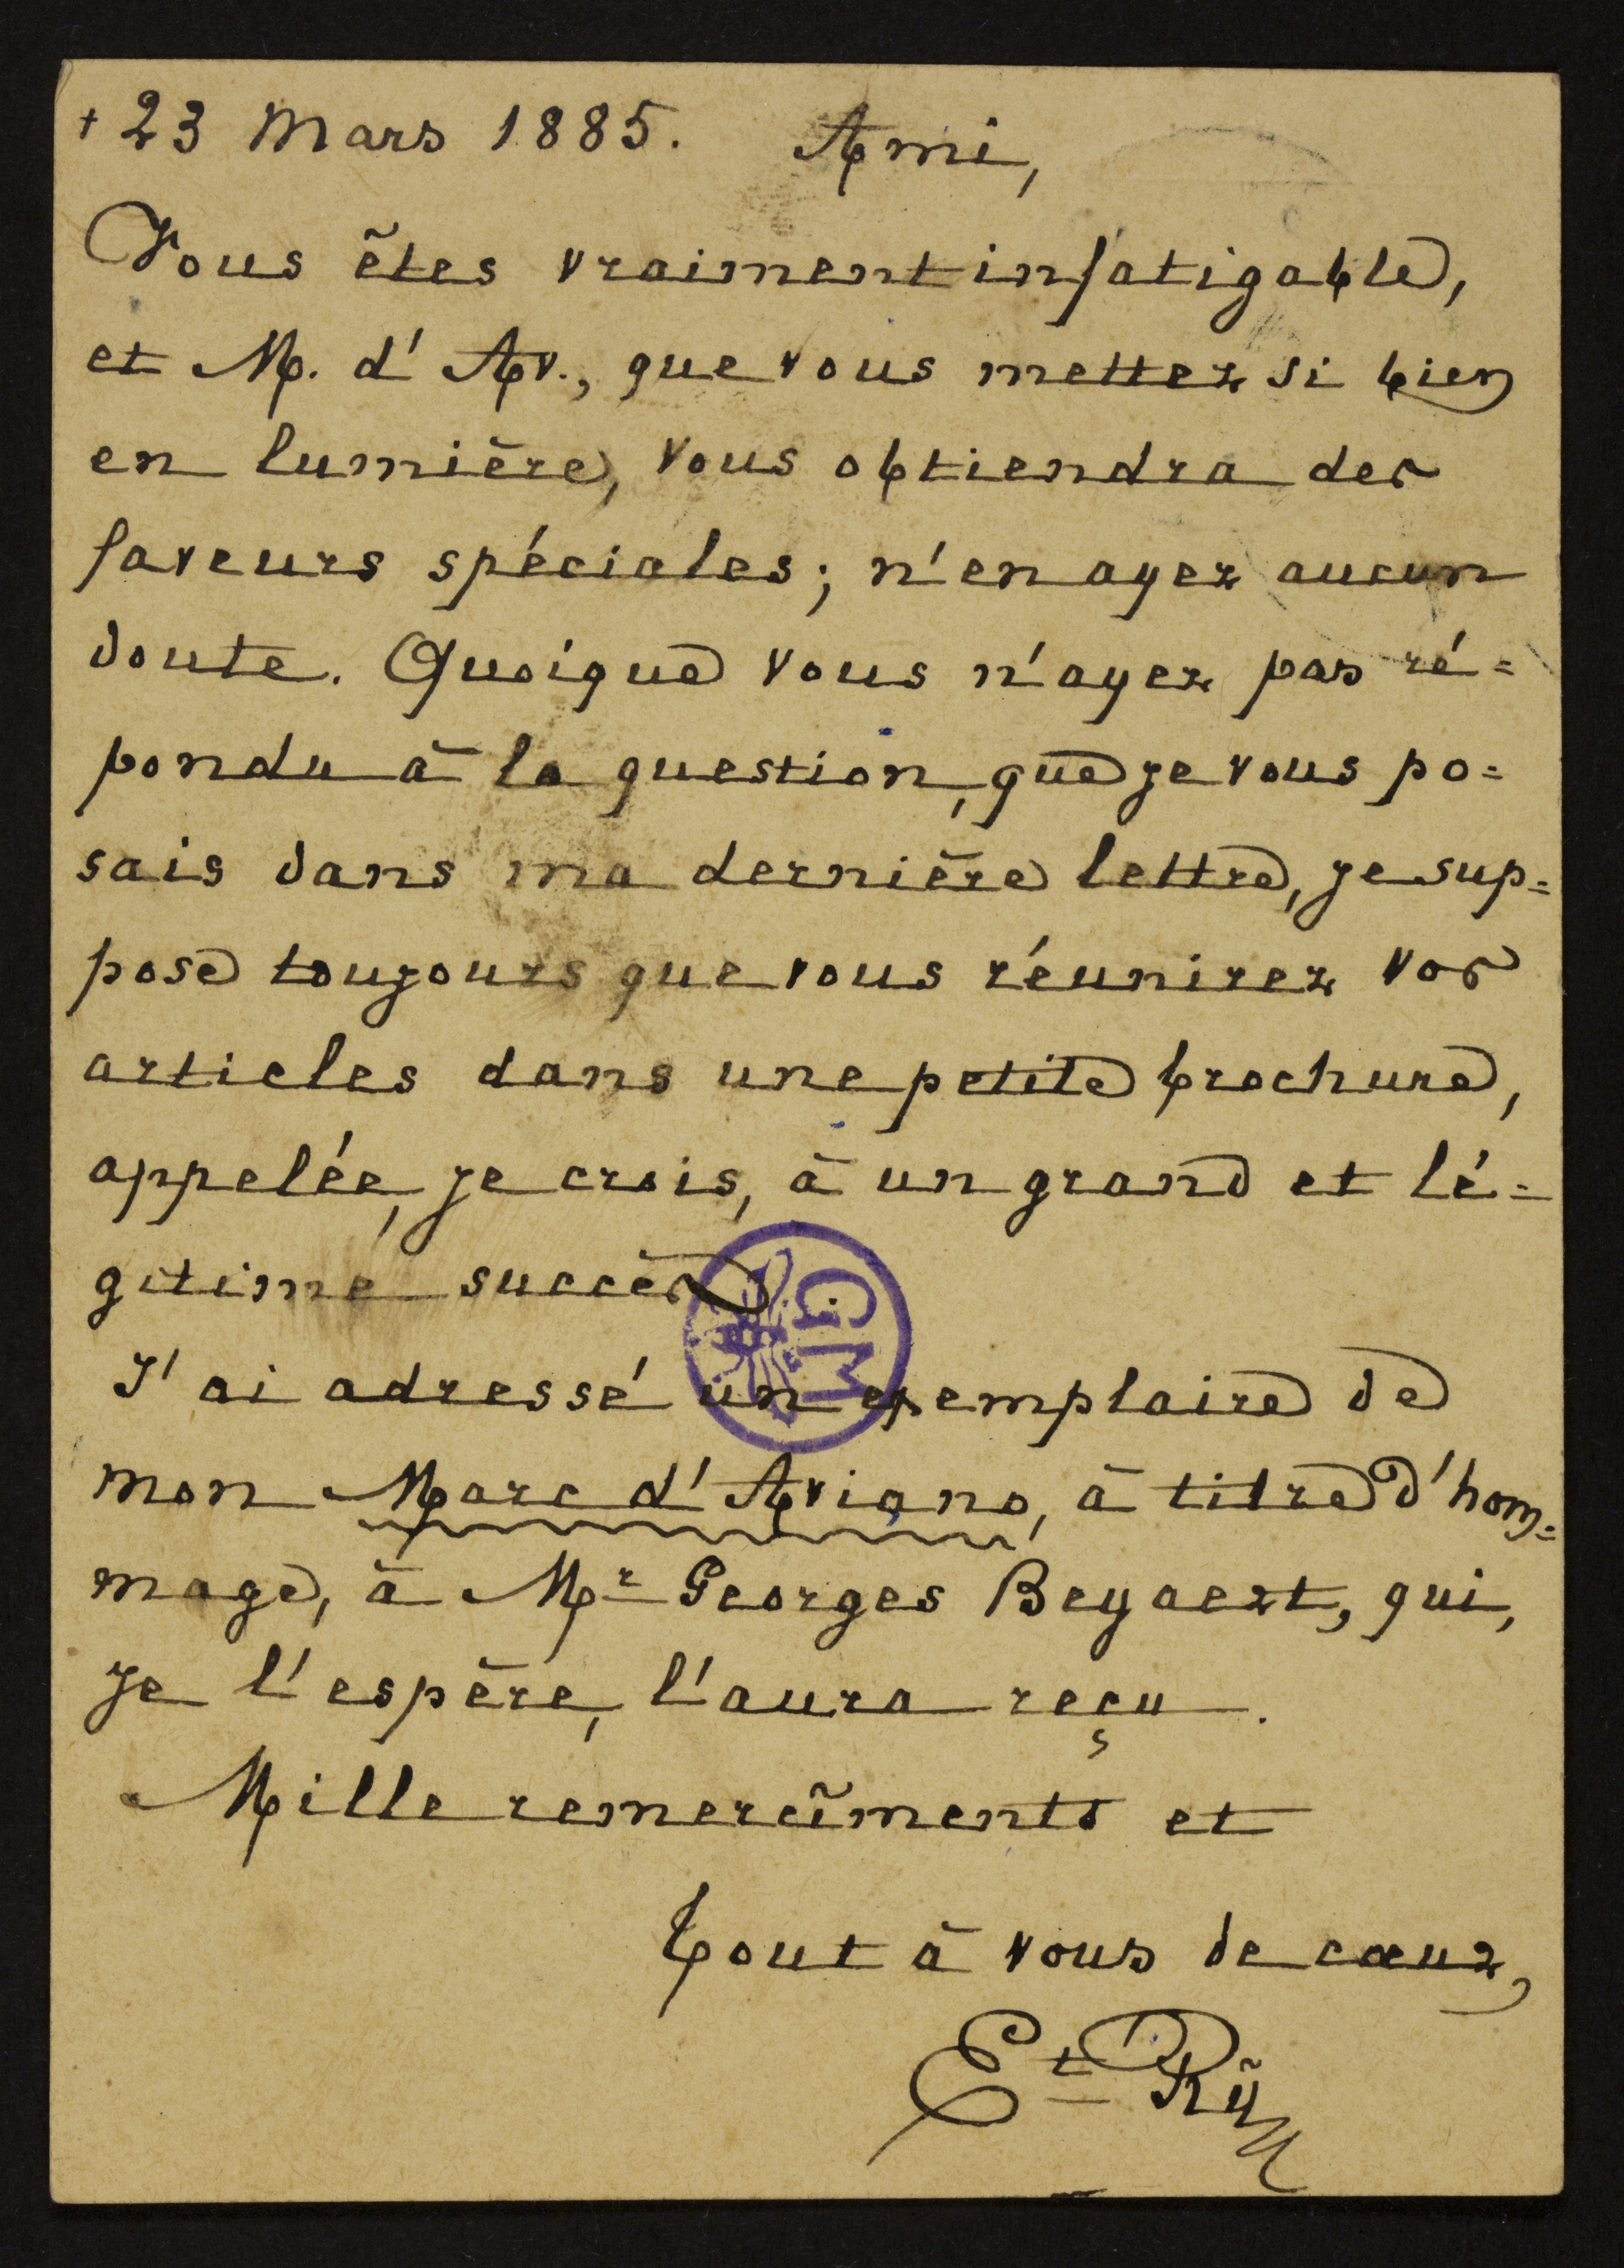 + 23 Mars 1885. Ami,
Vous êtes vraiment infatigable,
et M. d'Av., que vous mettez si bien
en lumière, vous obtiendra des
faveurs spéciales; n'en ayez aucun
doute. Quoique vous n'ayez pas ré=
pondu à la question, que je vous po=
sais dans ma dernière lettre, je sup=
pose toujours que vous réunirez vos
articles dans une petite brochure,
appelée, je crois, à un grand et lé=
gitime succès.
GM
J'ai adressé un exemplaire de
mon Marc d'Aviano, à titre d'hom=
mage, à Mr Georges Beyaert, qui,
je l'espère, l'aura reçu.
Mille remercîments et
tout à vous de cœur,